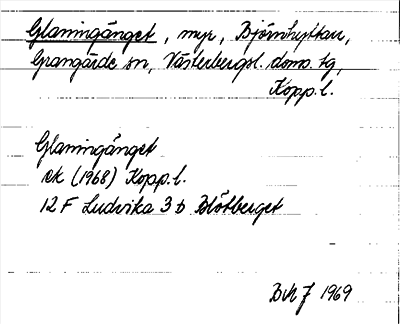 Glaningänget, myr, Björnhyttan,
Grangärde sn, Västerbergsl. doms. tg,
Kopp. l.
Glaningänget
ek (1968) Kopp. l.
12 F Ludvika 3 b Blötberget
1969